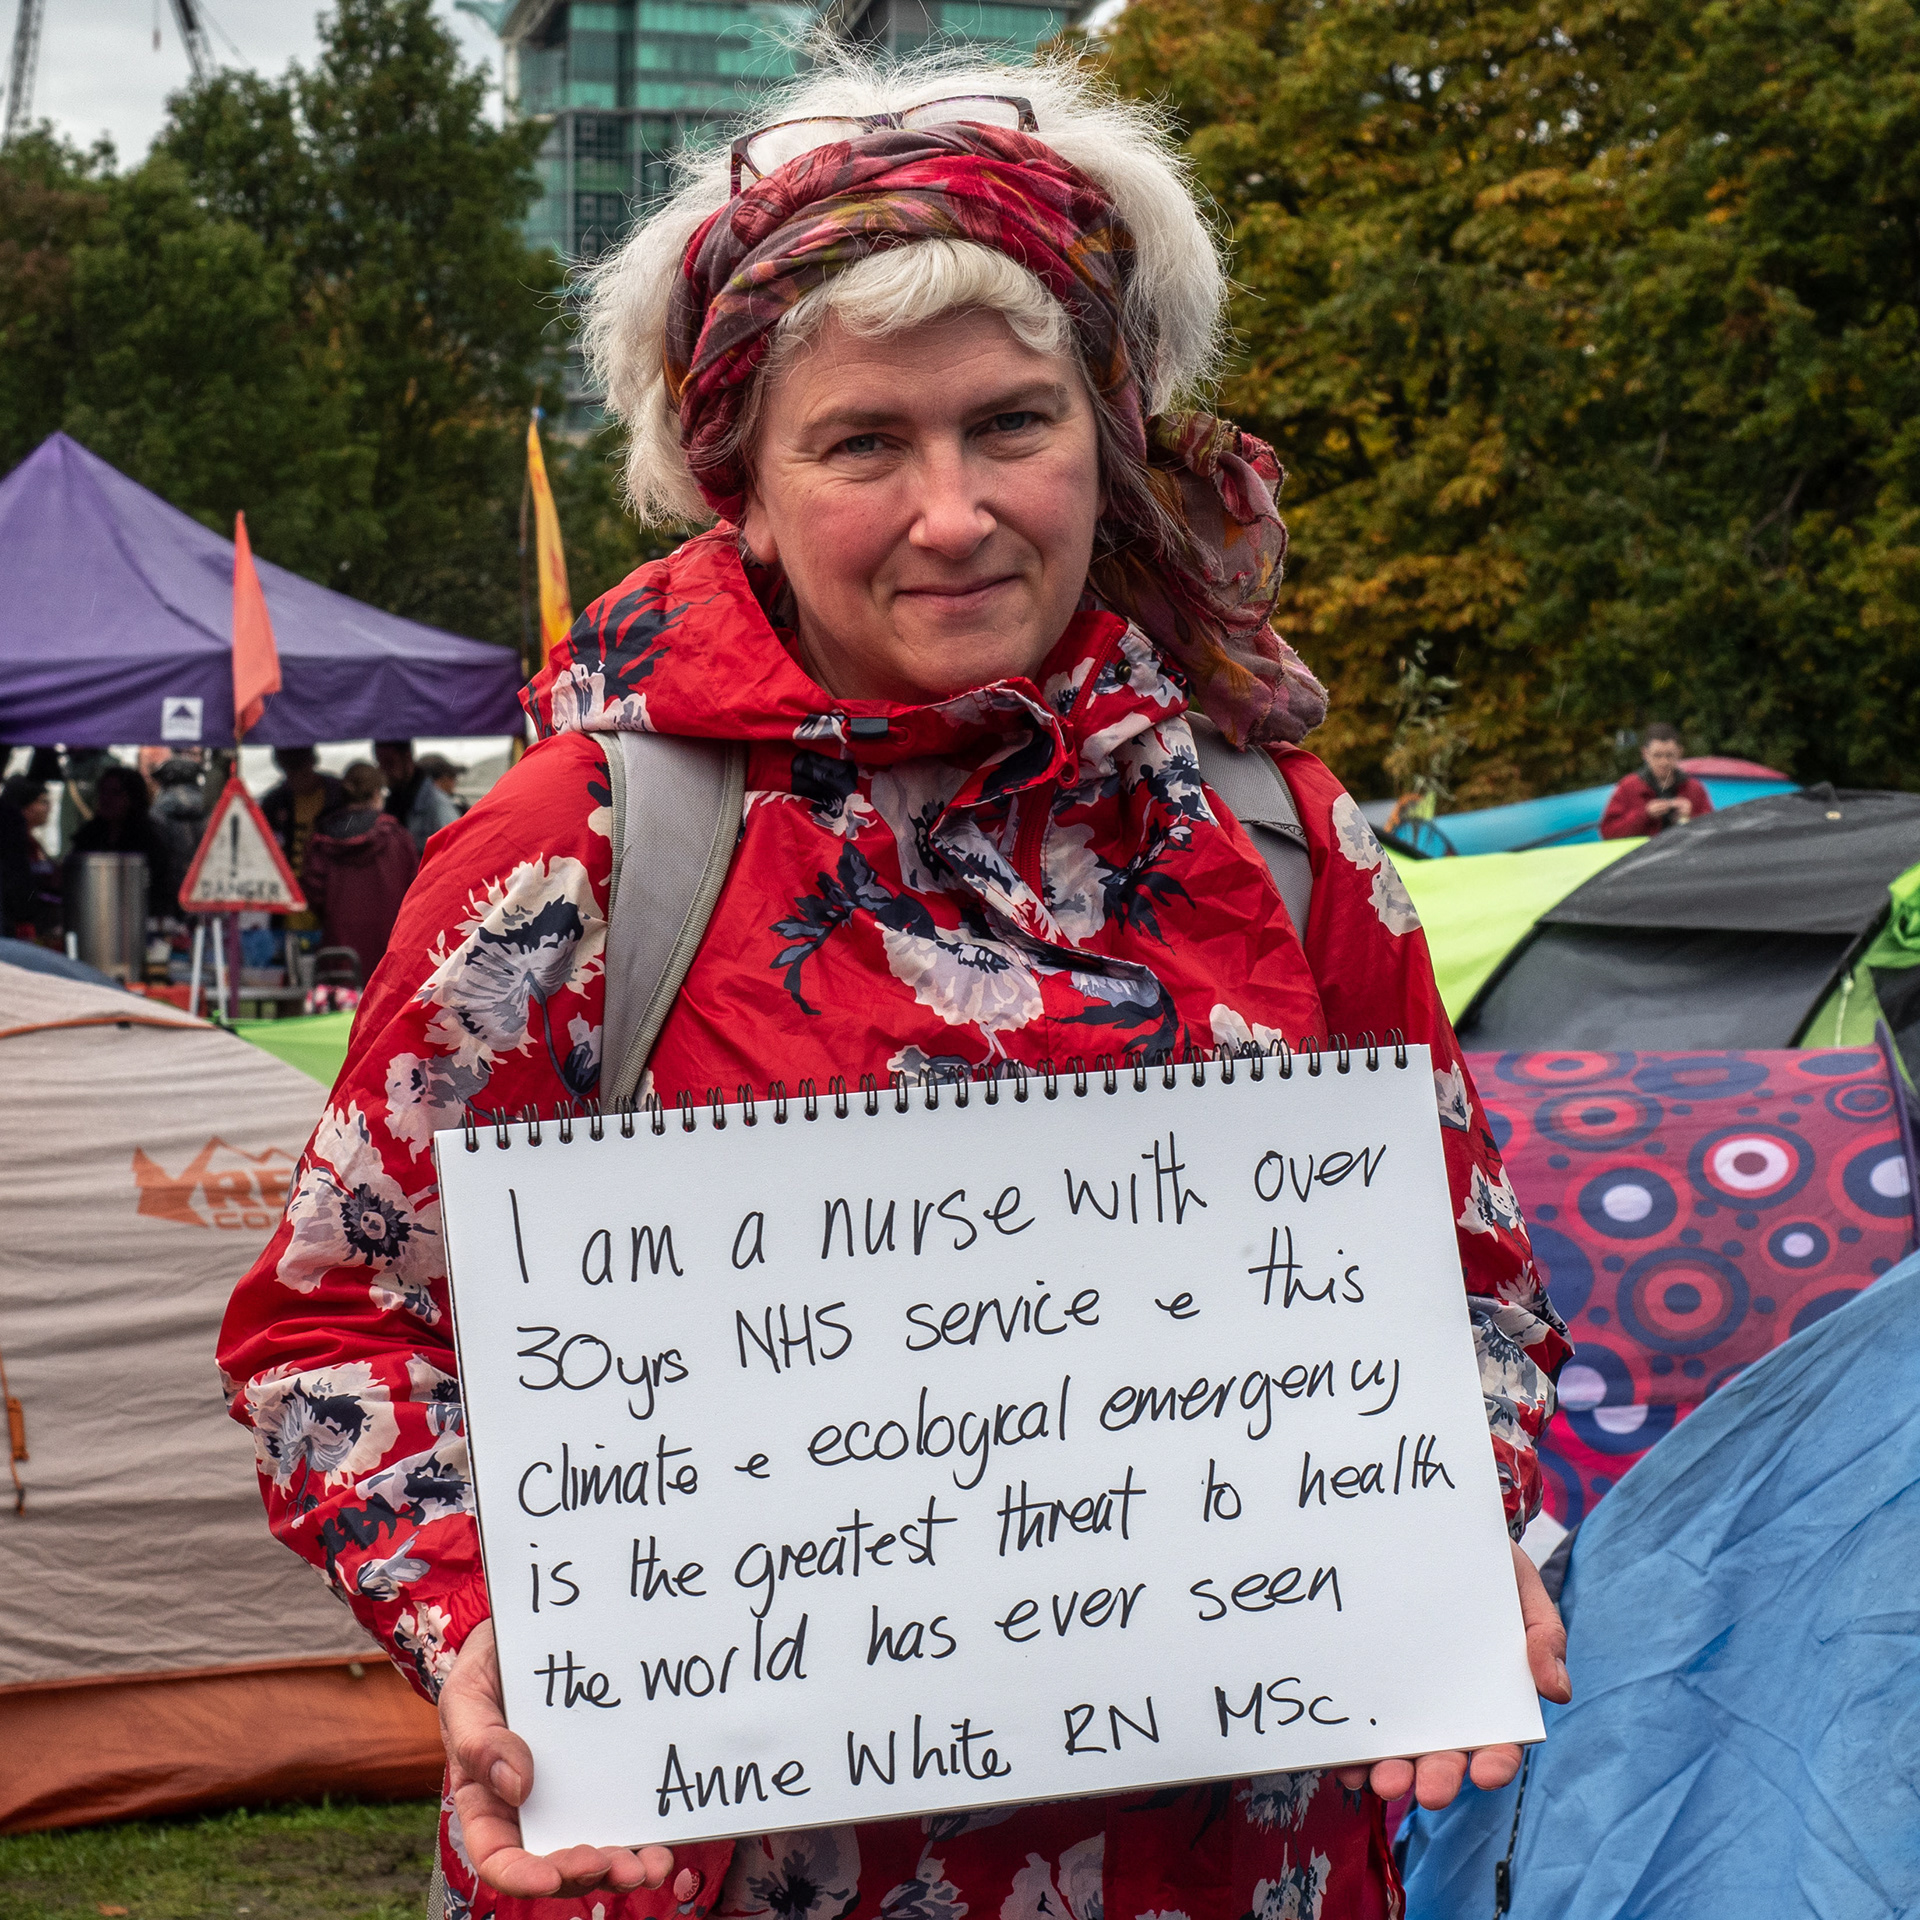 DANGER
I am a nurse with over
30yrs NHS service e this
climate e ecological emergency
is the greatest threat to health
the world has ever seen
Anne White RN MSc.